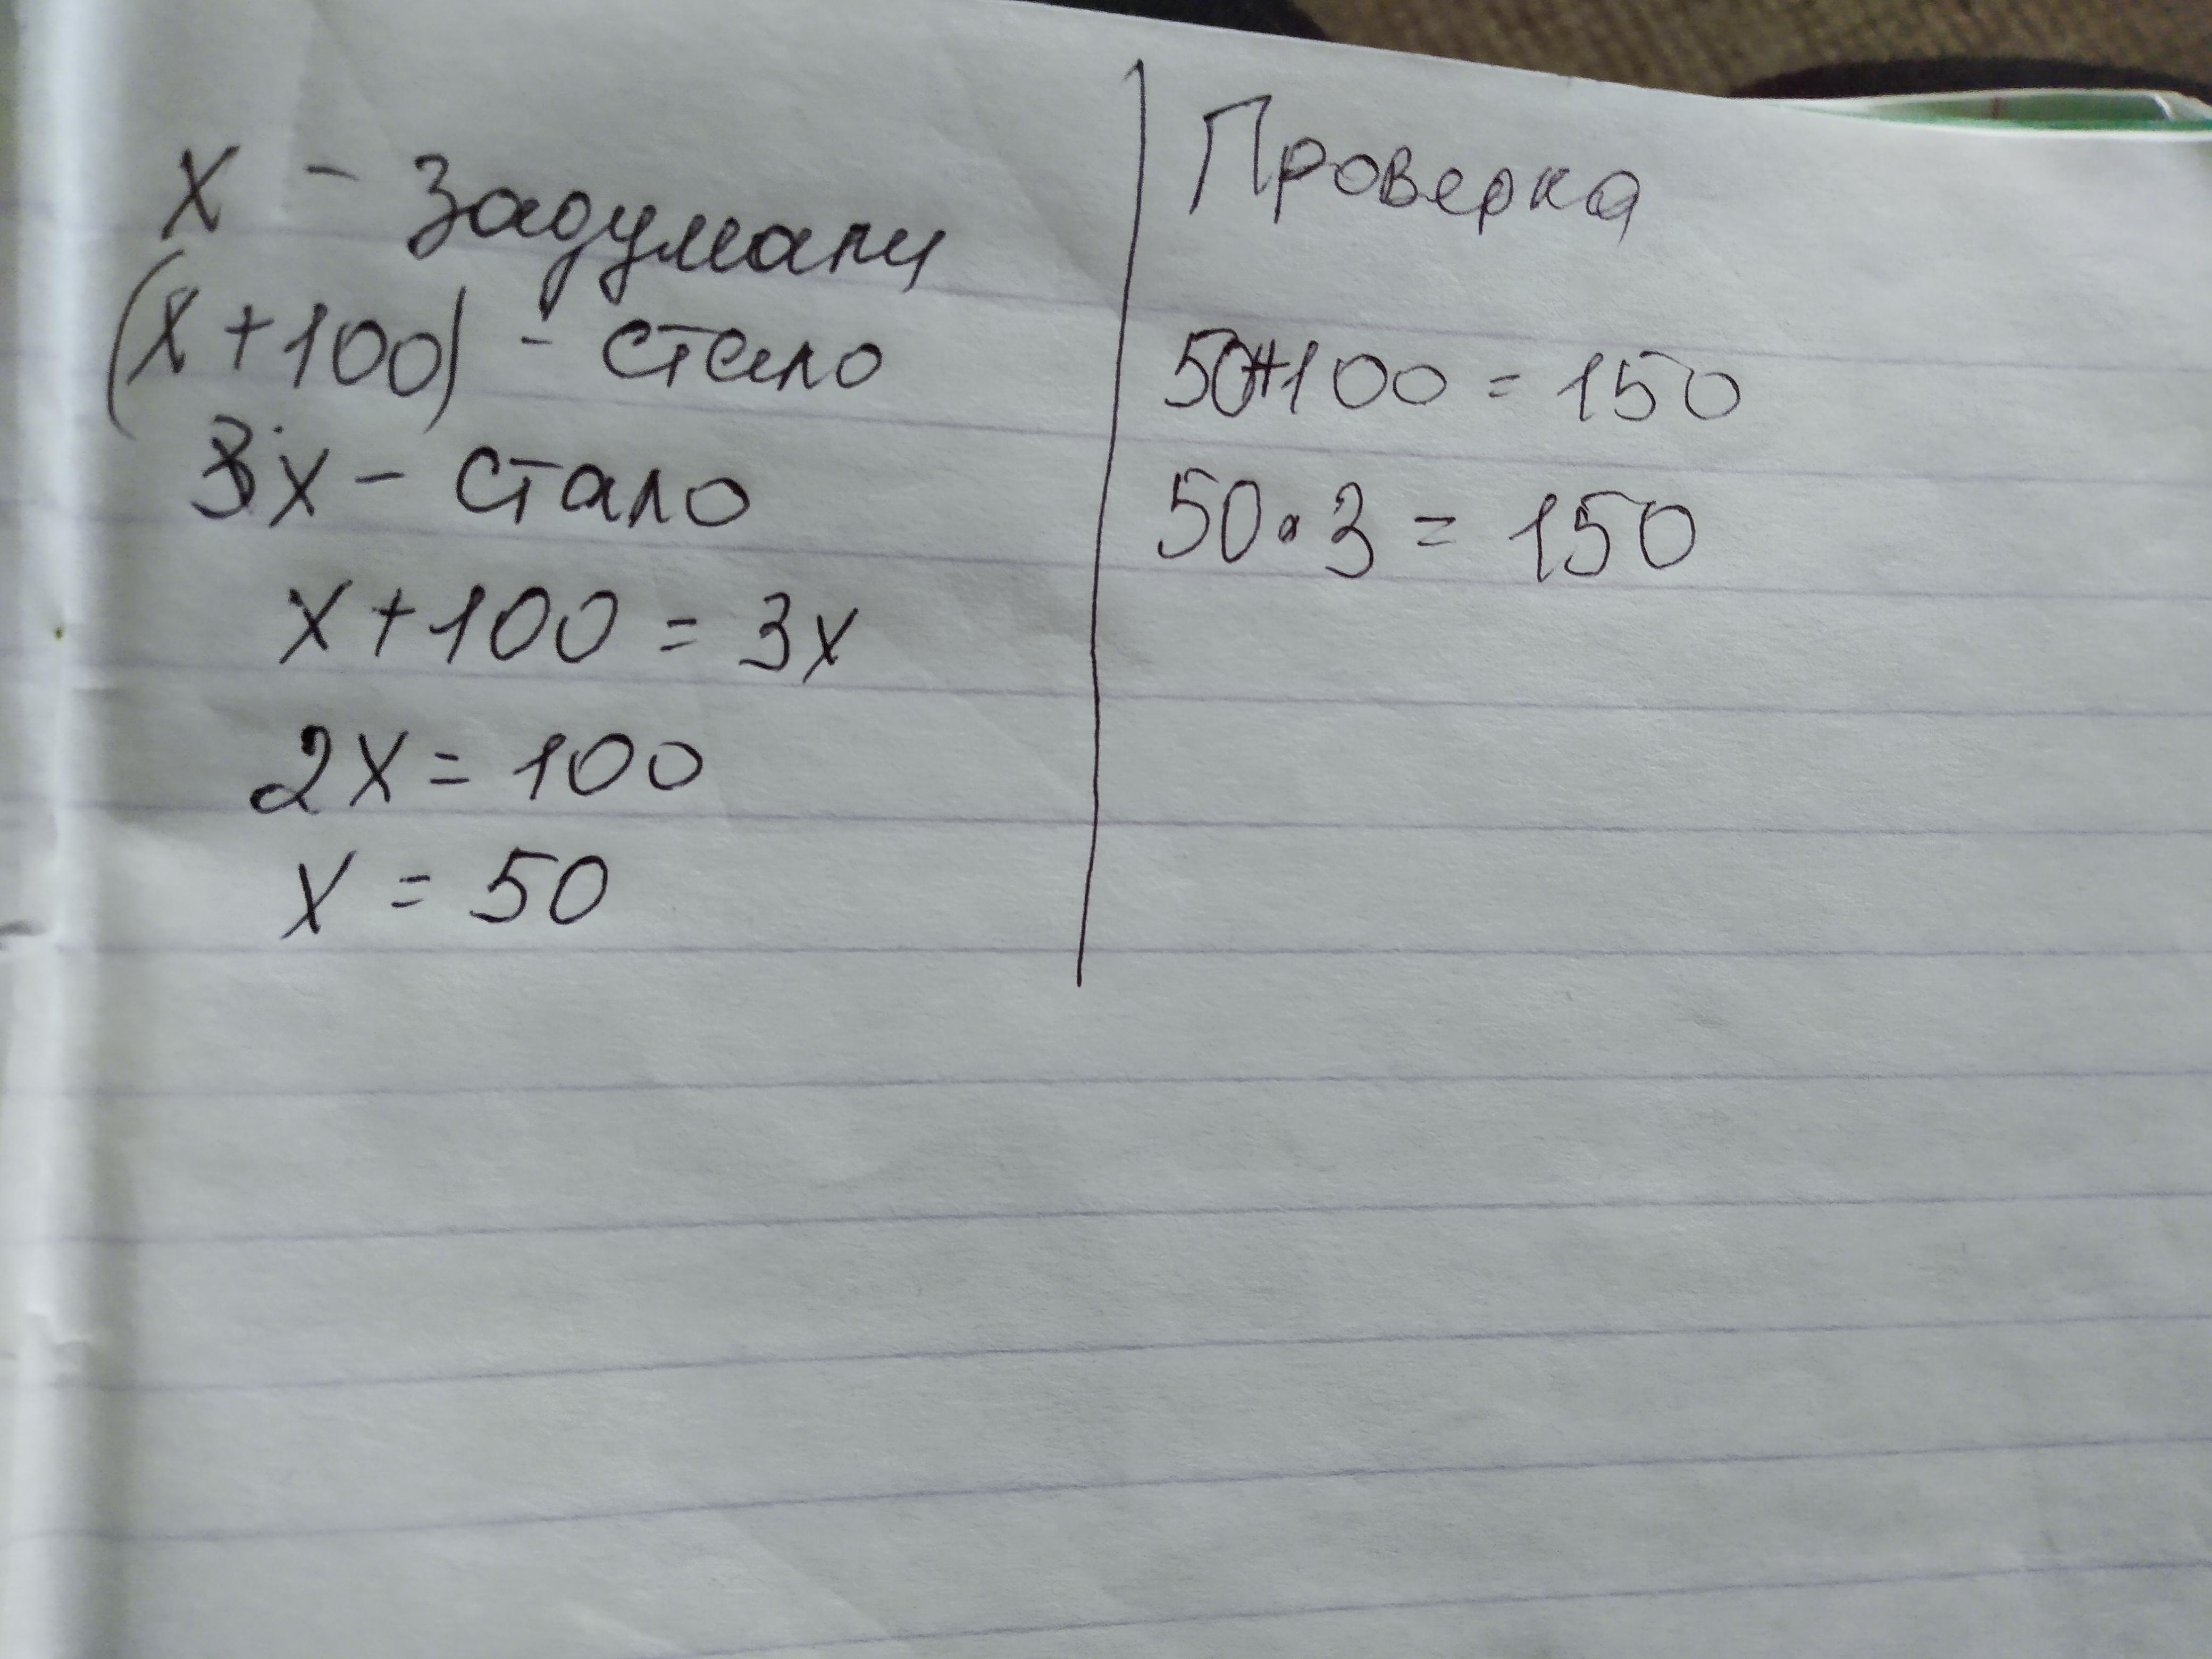 x - задумали
(x+100) - стало
3x - стало
x+100 = 3x
2x = 100
x = 50
Проверка
50+100 = 150
50·3 = 150